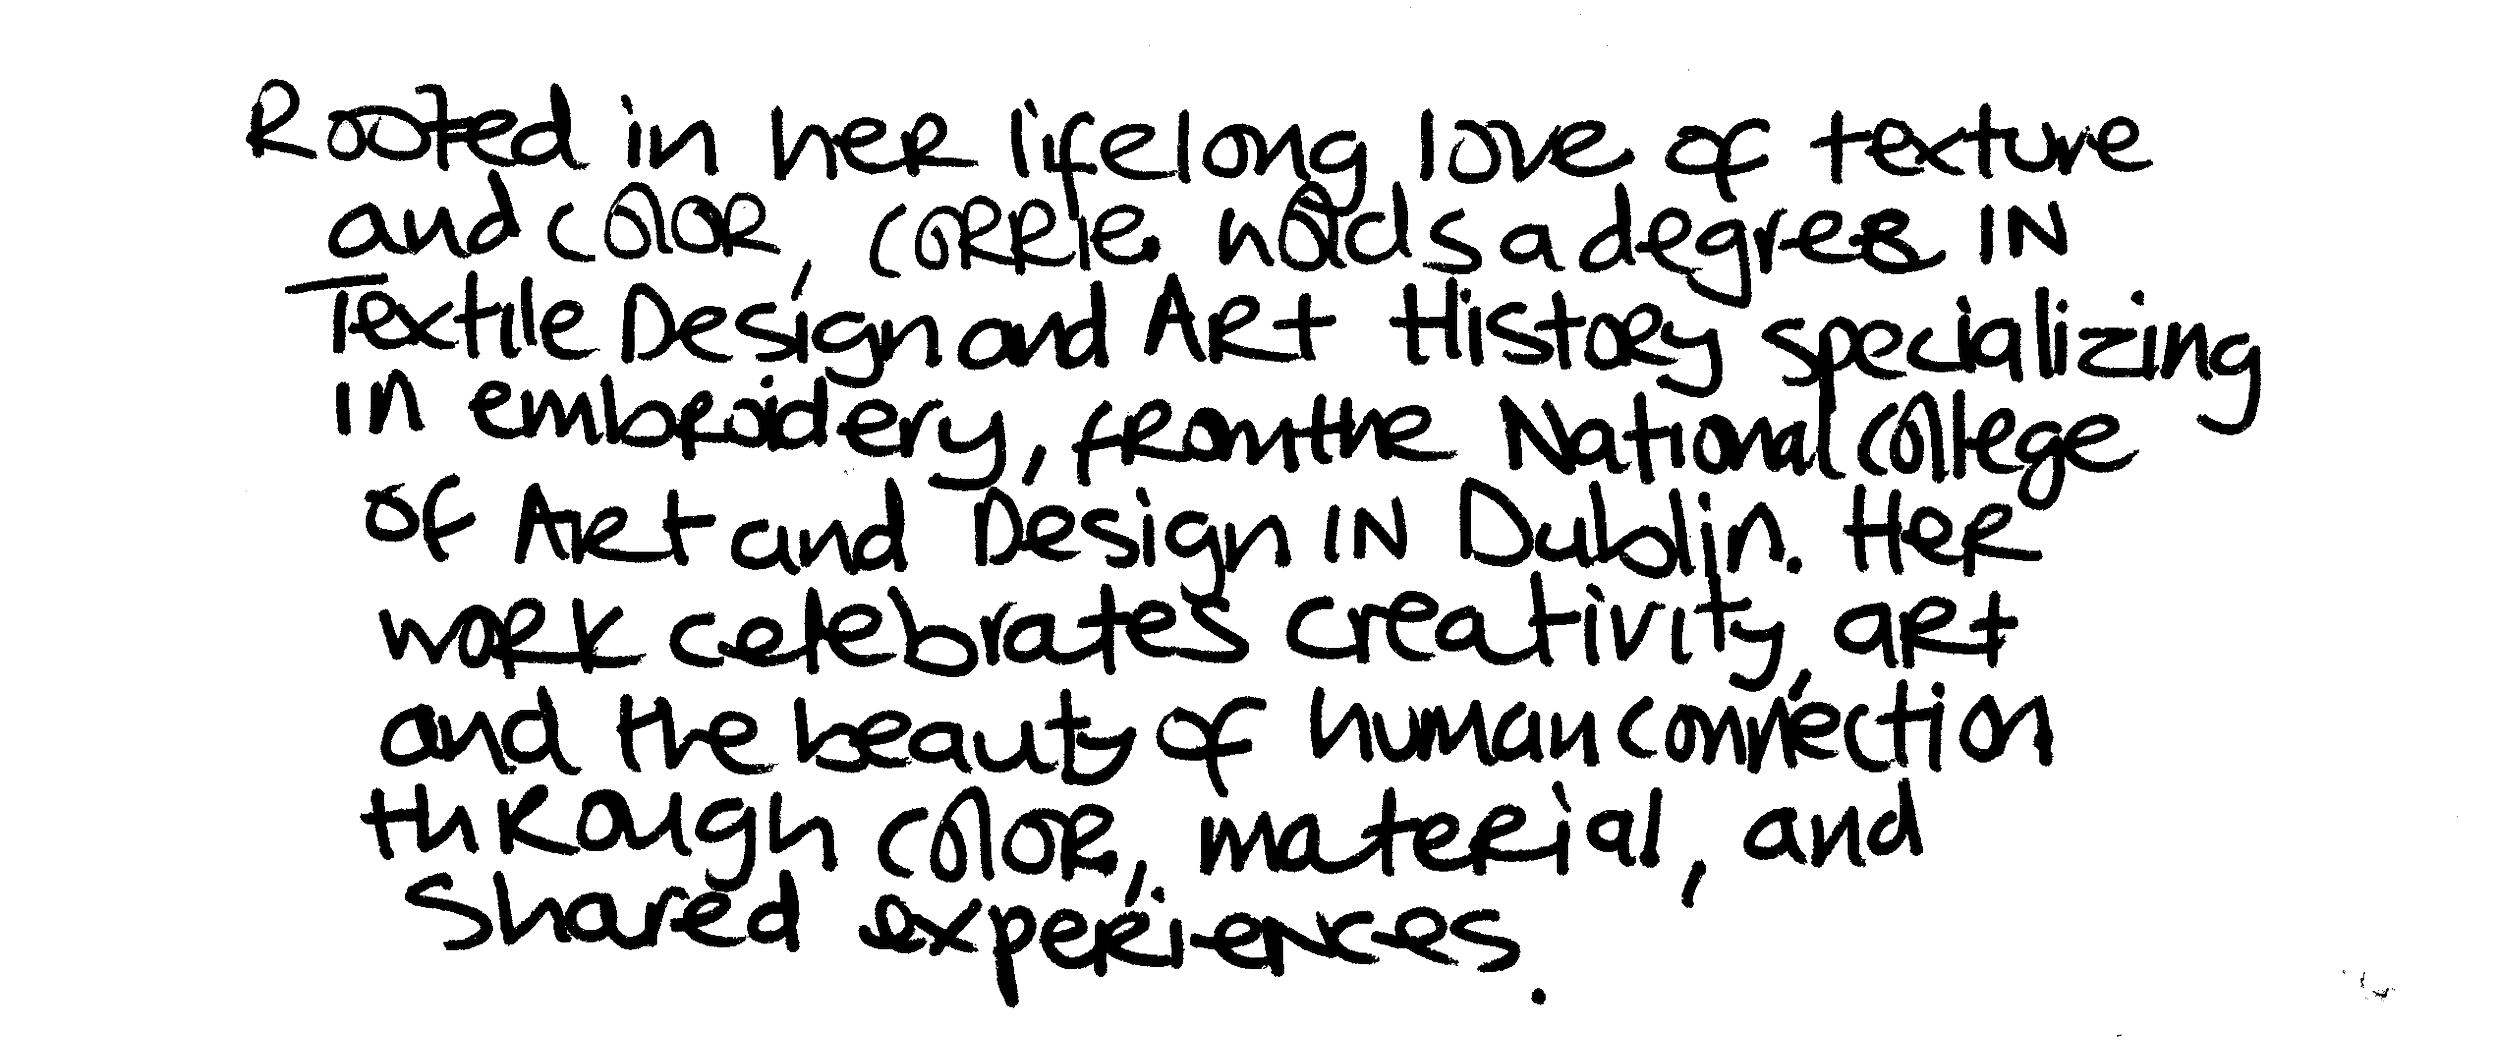 Rooted in her lifelong love of texture
and color, Corrie holds a degree in
Textile Design and Art History specializing
in embroidery, from the National College
of Art and Design in Dublin. Her
work celebrates creativity, art
and the beauty of human connection
through color, material, and
shared experiences.